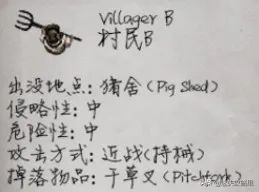 Villager B
村民B
出没地点：猪舍（Pig Shed）
侵略性：中
危险性：中
攻击方式：近战（持械）
掉落物品：干草叉（Pitchfork）